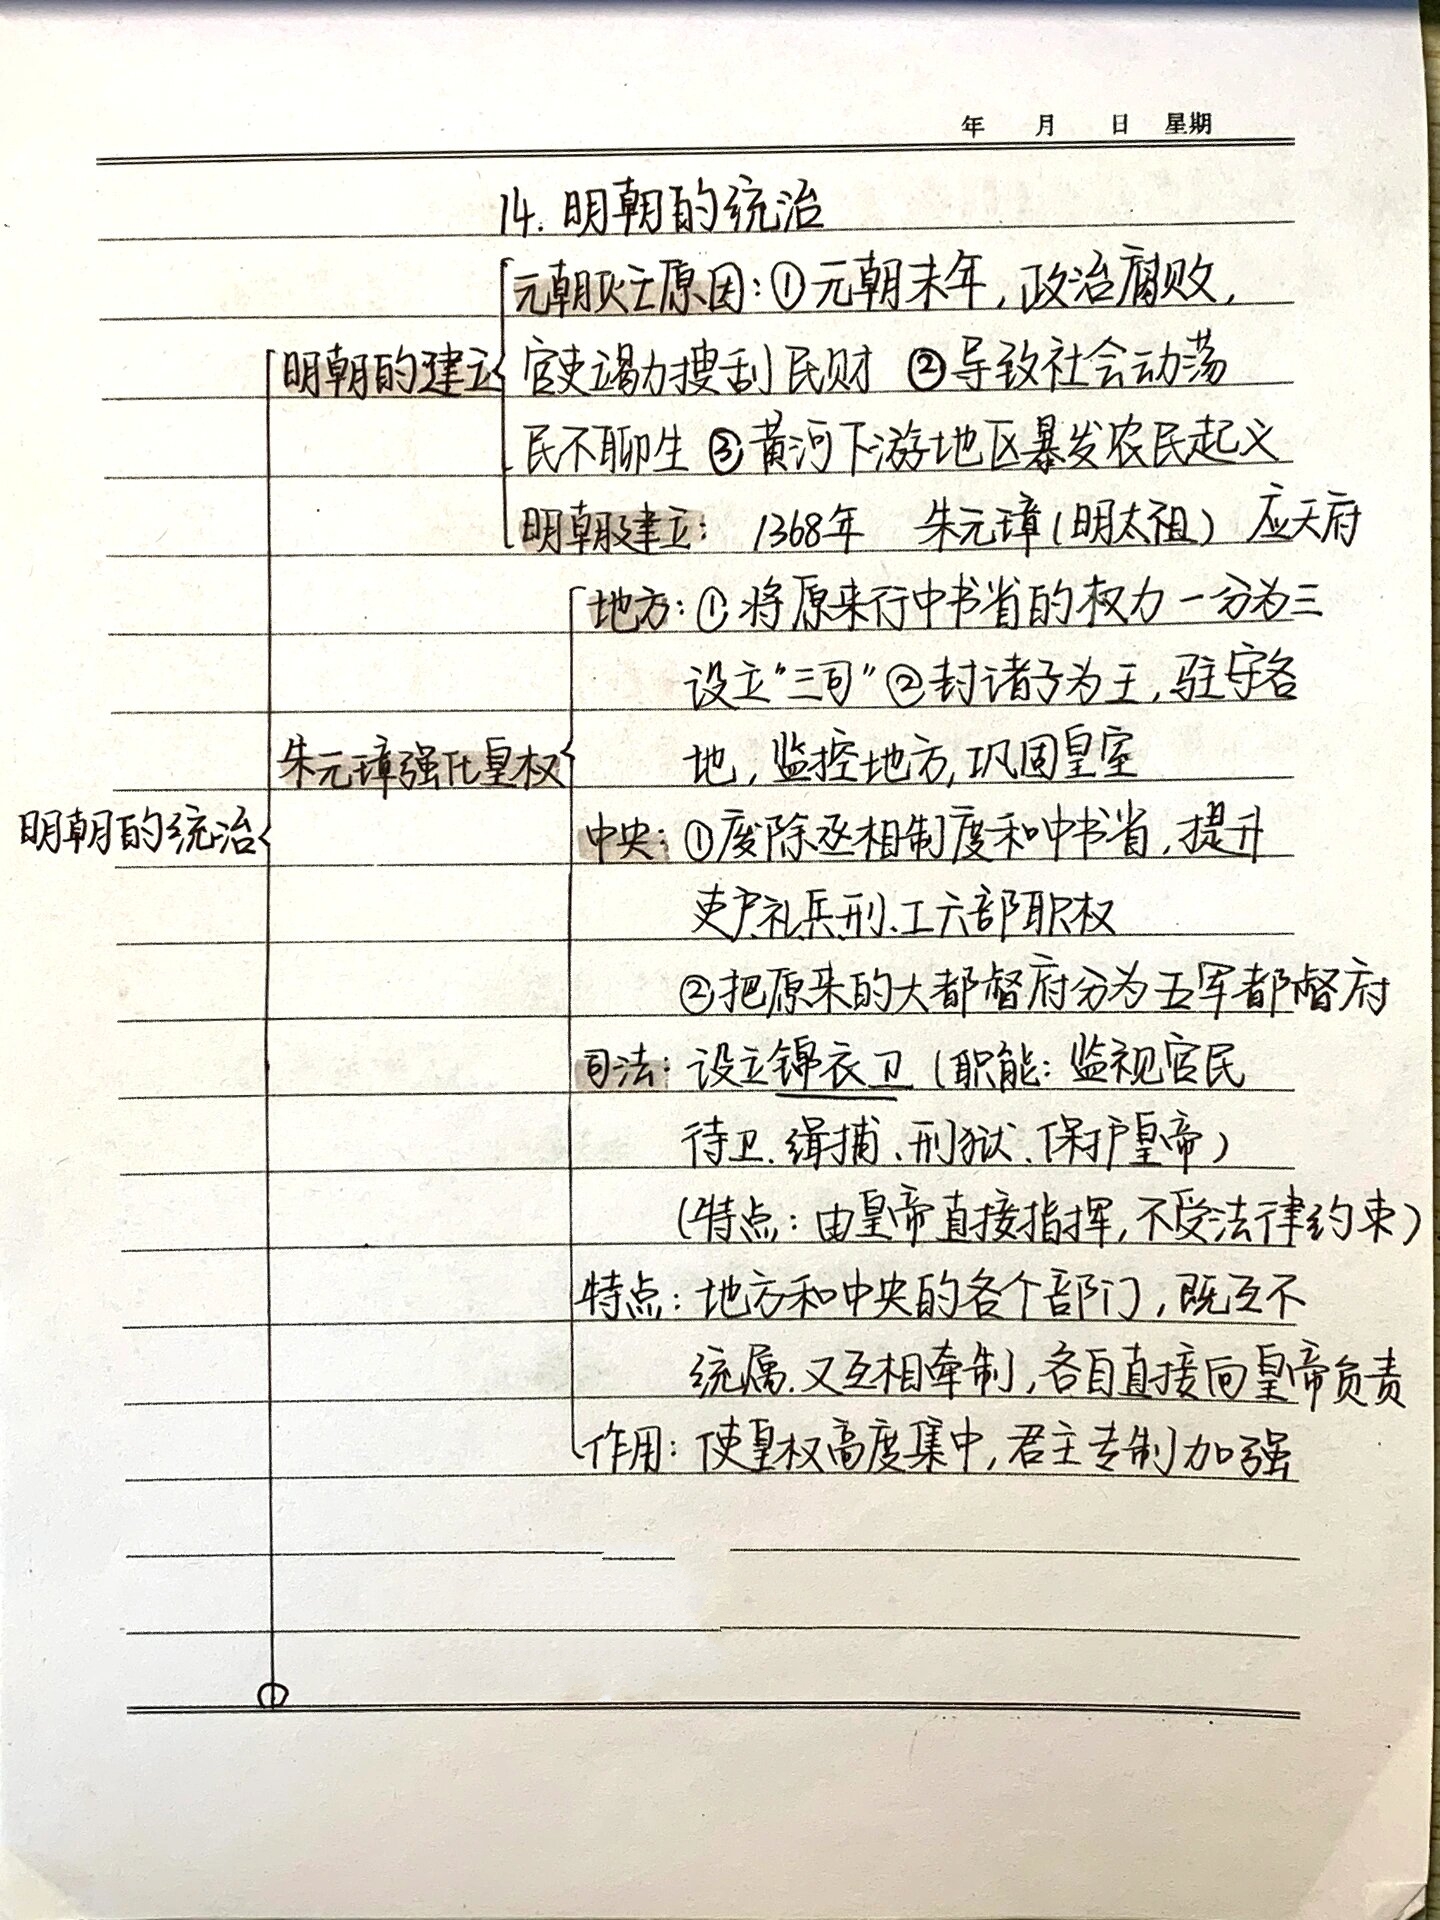 年 月 日 星期
14. 明朝的统治
元朝灭亡原因：①元朝末年，政治腐败，
明朝的建立
官吏竭力搜刮民财 ②导致社会动荡
民不聊生 ③黄河下游地区暴发农民起义
明朝建立： 1368年 朱元璋(明太祖) 应天府
地方：① 将原来行中书省的权力一分为三
设立"三司" ②封诸子为王，驻守各
朱元璋强化皇权
地，监控地方，巩固皇室
明朝的统治
中央：①废除丞相制度和中书省，提升
吏、户、礼、兵、刑、工六部职权
②把原来的大都督府分为五军都督府
司法：设立锦衣卫 (职能：监视官民
侍卫、缉捕、刑狱、保护皇帝)
(特点：由皇帝直接指挥，不受法律约束)
特点：地方和中央的各个部门，既互不
统属、又互相牵制，各自直接向皇帝负责
作用：使皇权高度集中，君主专制加强